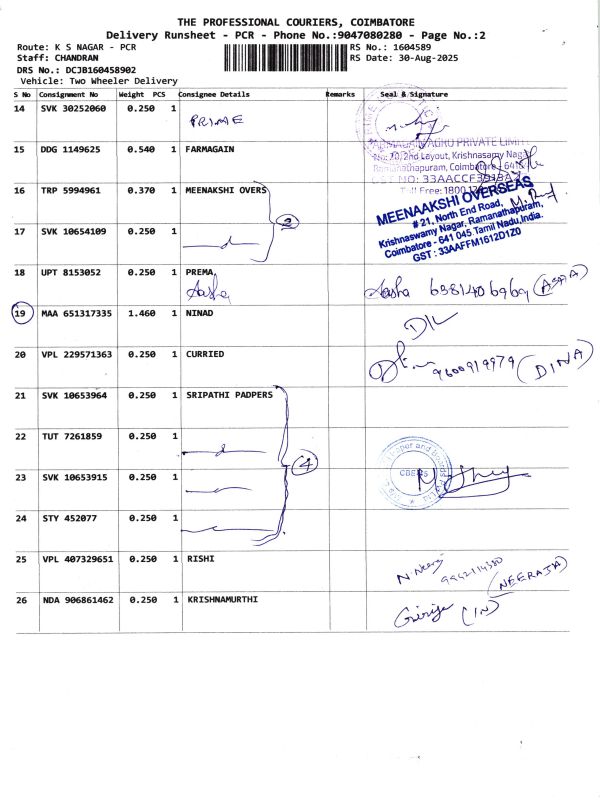 THE PROFESSIONAL COURIERS, COIMBATORE
Delivery Runsheet - PCR - Phone No.:9047080280 - Page No.:2
Route: K S NAGAR - PCR RS No.: 1604589
Staff: CHANDRAN RS Date: 30-Aug-2025
DRS No.: DCJB160458902
Vehicle: Two Wheeler Delivery
S No Consignment No Weight PCS Consignee Details Remarks Seal & Signature
14 SVK 30252060 0.250 1 PRIME
15 DDG 1149625 0.540 1 FARMAGAIN
FARMAGAIN AGRO PRIVATE LIMITED
No: 70, 2nd Layout, Krishnasamy Nagar
Ramanathapuram, Coimbatore - 641
GST NO: 33AACCF
Toll Free: 1800
16 TRP 5994961 0.370 1 MEENAKSHI OVERS
MEENAAKSHI OVERSEAS
# 21, North End Road,
Krishnaswamy Nagar, Ramanathapuram,
Coimbatore - 641 045. Tamil Nadu, India.
GST : 33AAFFM1612D1Z0
2
17 SVK 10654109 0.250 1
18 UPT 8153052 0.250 1 PREMA,
Aasha
Aasha 6381406969 (ASHA)
19 MAA 651317335 1.460 1 NINAD
D/L
20 VPL 229571363 0.250 1 CURRIED
9600919979 (DINA)
21 SVK 10653964 0.250 1 SRIPATHI PADPERS
22 TUT 7261859 0.250 1
4
23 SVK 10653915 0.250 1
Paper and Boards
CBE
24 STY 452077 0.250 1
25 VPL 407329651 0.250 1 RISHI
N. Neeraj
(NEERAJA)
26 NDA 906861462 0.250 1 KRISHNAMURTHI
Girija (IN)